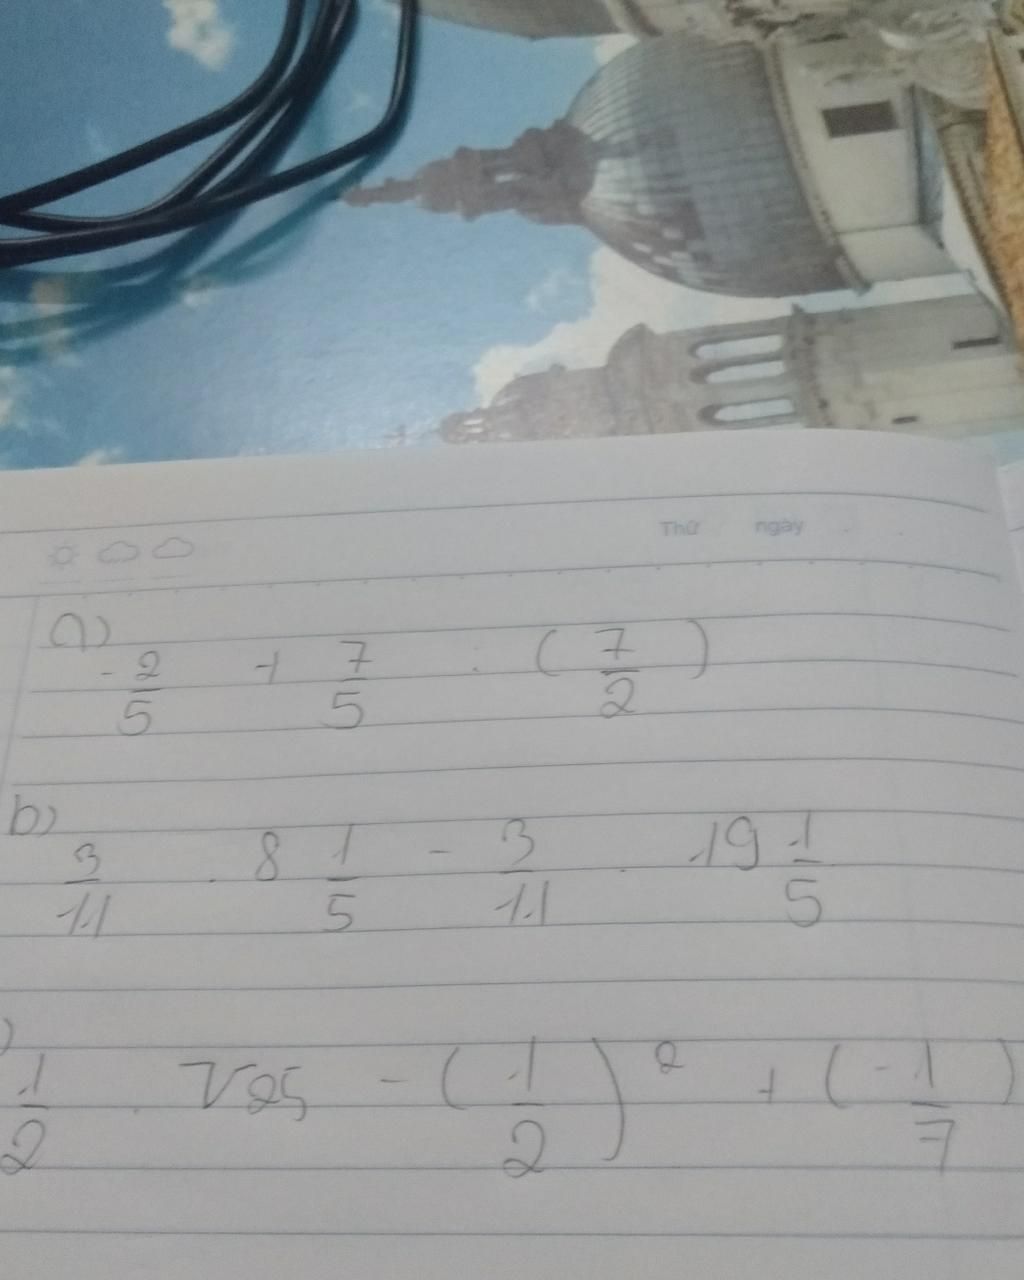 Thứ ngày
a)
-2/5 + 7/5 : (7/2)
b)
3/11 . 8 1/5 - 3/11 . 19 1/5
)
1/2 . √25 - (1/2)² + (-1/7)